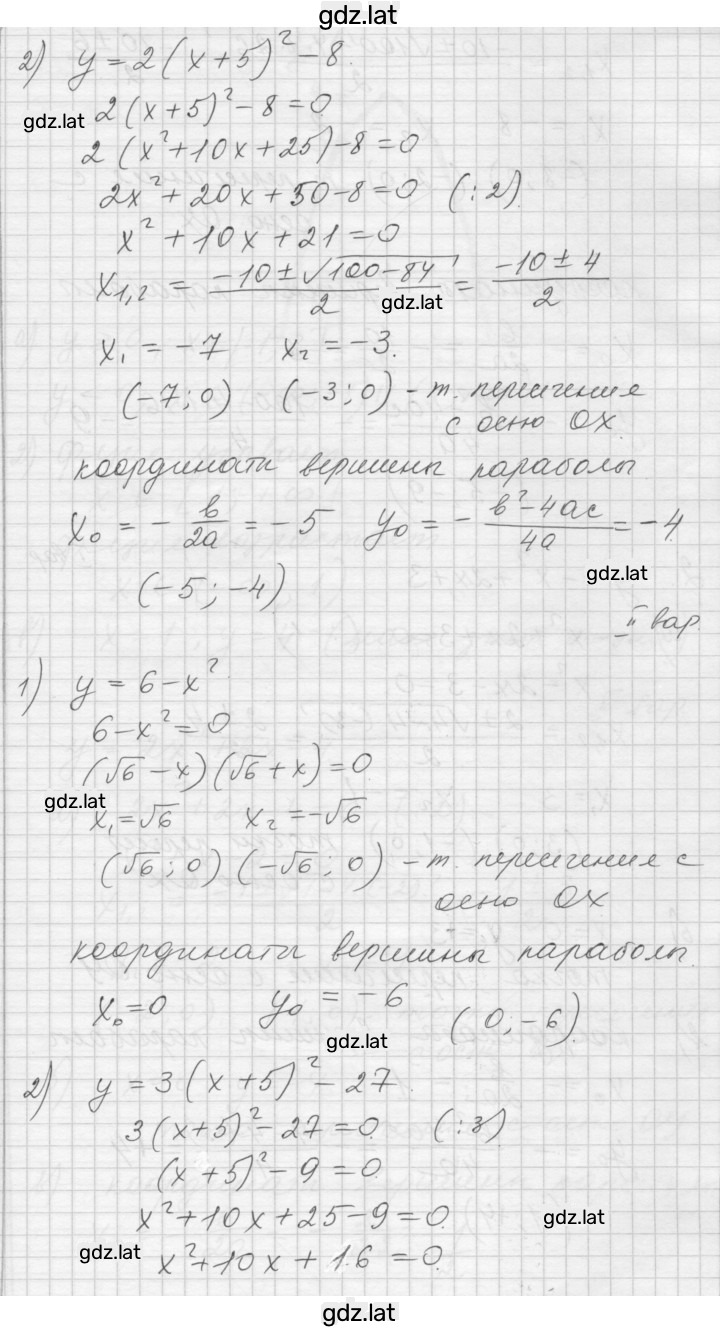 gdz.lat
2) y = 2(x+5)² - 8.
gdz.lat
2(x+5)² - 8 = 0
2(x² + 10x + 25) - 8 = 0
2x² + 20x + 50 - 8 = 0 (:2)
x² + 10x + 21 = 0
x₁,₂ = (-10 ± √(100-84))/2 = (-10 ± 4)/2
gdz.lat
x₁ = -7 x₂ = -3.
(-7; 0) (-3; 0) - т. пересичения
с осью OX.
координати вершины параболы
x₀ = - в/2a = -5 y₀ = - (в² - 4ac)/4a = -4
gdz.lat
(-5; -4)
II вар.
1) y = 6 - x²
6 - x² = 0
(√6 - x)(√6 + x) = 0
gdz.lat
x₁ = √6 x₂ = -√6
(√6; 0) (-√6; 0) - т. пересичения с
осью OX
координаты вершины параболы.
x₀ = 0 y₀ = -6 (0; -6).
gdz.lat
2) y = 3(x+5)² - 27.
3(x+5)² - 27 = 0 (:3)
(x+5)² - 9 = 0.
x² + 10x + 25 - 9 = 0.
gdz.lat
x² + 10x + 16 = 0.
gdz.lat
gdz.lat